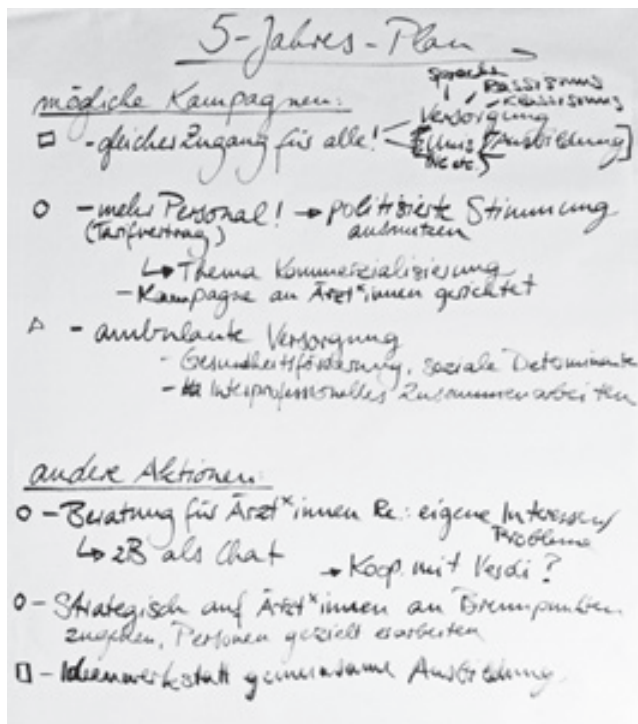 5-Jahres-Plan
Sprache Rassismus
Klassismus
mögliche Kampagnen:
Versorgung
- gleicher Zugang für alle! [Unis [Ausbildung]
- mehr Personal! → politisierte Stimmung
(Tarifvertrag) ausnutzen
↳ Thema Kommerzialisierung
- Kampagne an Ärzt*innen gerichtet
- ambulante Versorgung
- Gesundheitsförderung, soziale Determinante
- Interprofessionelles Zusammenarbeiten
andere Aktionen:
- Beratung für Ärzt*innen Re: eigene Interessen/
Probleme
↳ zB als Chat
→ Koop. mit Verdi?
- Strategisch auf Ärzt*innen an Brennpunkten
zugehen, Personen gezielt erarbeiten
- Ideenwerkstatt gemeinsame Ausbildung